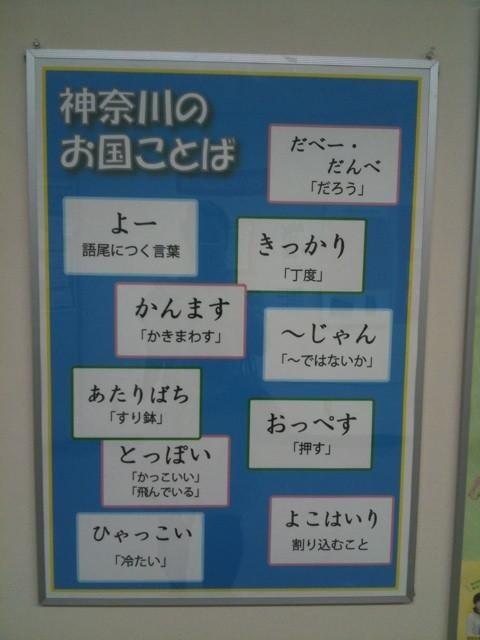 神奈川の
お国ことば
だべー・
だんべ
「だろう」
よー
語尾につく言葉
きっかり
「丁度」
かんます
「かきまわす」
～じゃん
「～ではないか」
あたりばち
「すり鉢」
おっぺす
「押す」
とっぽい
「かっこいい」
「飛んでいる」
よこはいり
割り込むこと
ひゃっこい
「冷たい」